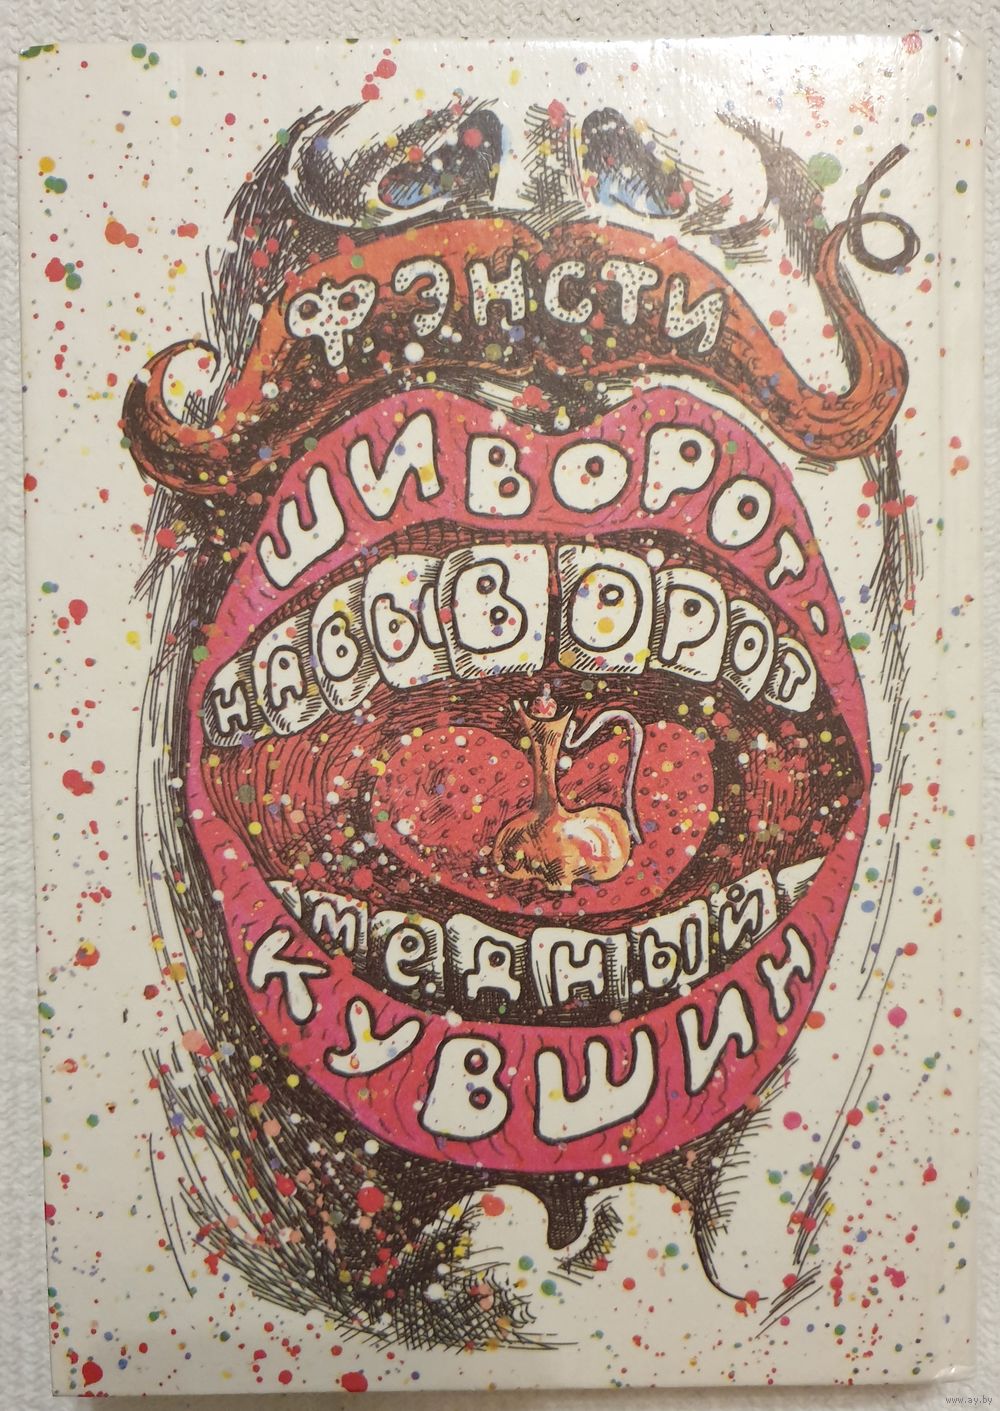 ФЭНСТИ
ШИВОРОТ-
НАВЫВОРОТ
МЕДНЫЙ
КУВШИН
www.ay.by